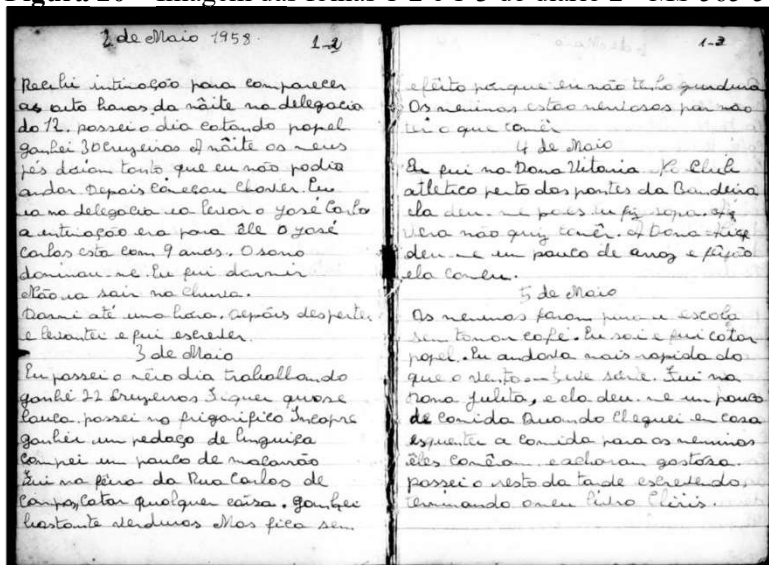 2 de Maio 1958. 1-2
Recebi intimação para comparecer
as oito horas da nâite na delegacia
do 12. passei o dia catando papel
ganhei 30 cruzeiros A nâite os meus
pés doiam tanto que eu não podia
andar Depois começou chover. Eu
ia na delegacia ia levar o José Carlos
a intimação era para êle O José
Carlos esta com 9 anos. O sono
dominou-me. Eu fui dormir
Não ia sair na chuva.
Dormi até uma hora. depôis despertei
e levantei e fui escrever.
3 de Maio
Eu passei o dia trabalhando
ganhei 22 Cruzeiros Fiquei quase
louca. passei no frigorifico Incapre
ganhei um pedaço de linguiça
compei um pouco de macarrão
Fui na feira da Rua Carlos de
Campos, catar qualquer côisa. ganhei
bastante verduras Mas fica sem
1-3
efêito porque eu não tenho gurdura
Os meninos estao nervosos por não
ter o que comêr
4 de Maio
Eu fui na Dona Vitoria No Club
atletico perto das pontes da Bandeira
ela deu-me paes eu fiz sopa. A
Vera não quiz comêr. A Dona
deu-me um pouco de arroz e feijão
ela comeu.
5 de Maio
Os meninos foram para a escola
sem tomar café. Eu sai e fui catar
papel. Eu andava mais rapida do
que o vento. Fui na
Dona Julita, e ela deu-me um pouco
de comida Quando cheguei em casa
esquentei a comida para os meninos
êles comêram e acharam gostôsa.
passei o resto da tarde escrevendo,
terminando o meu